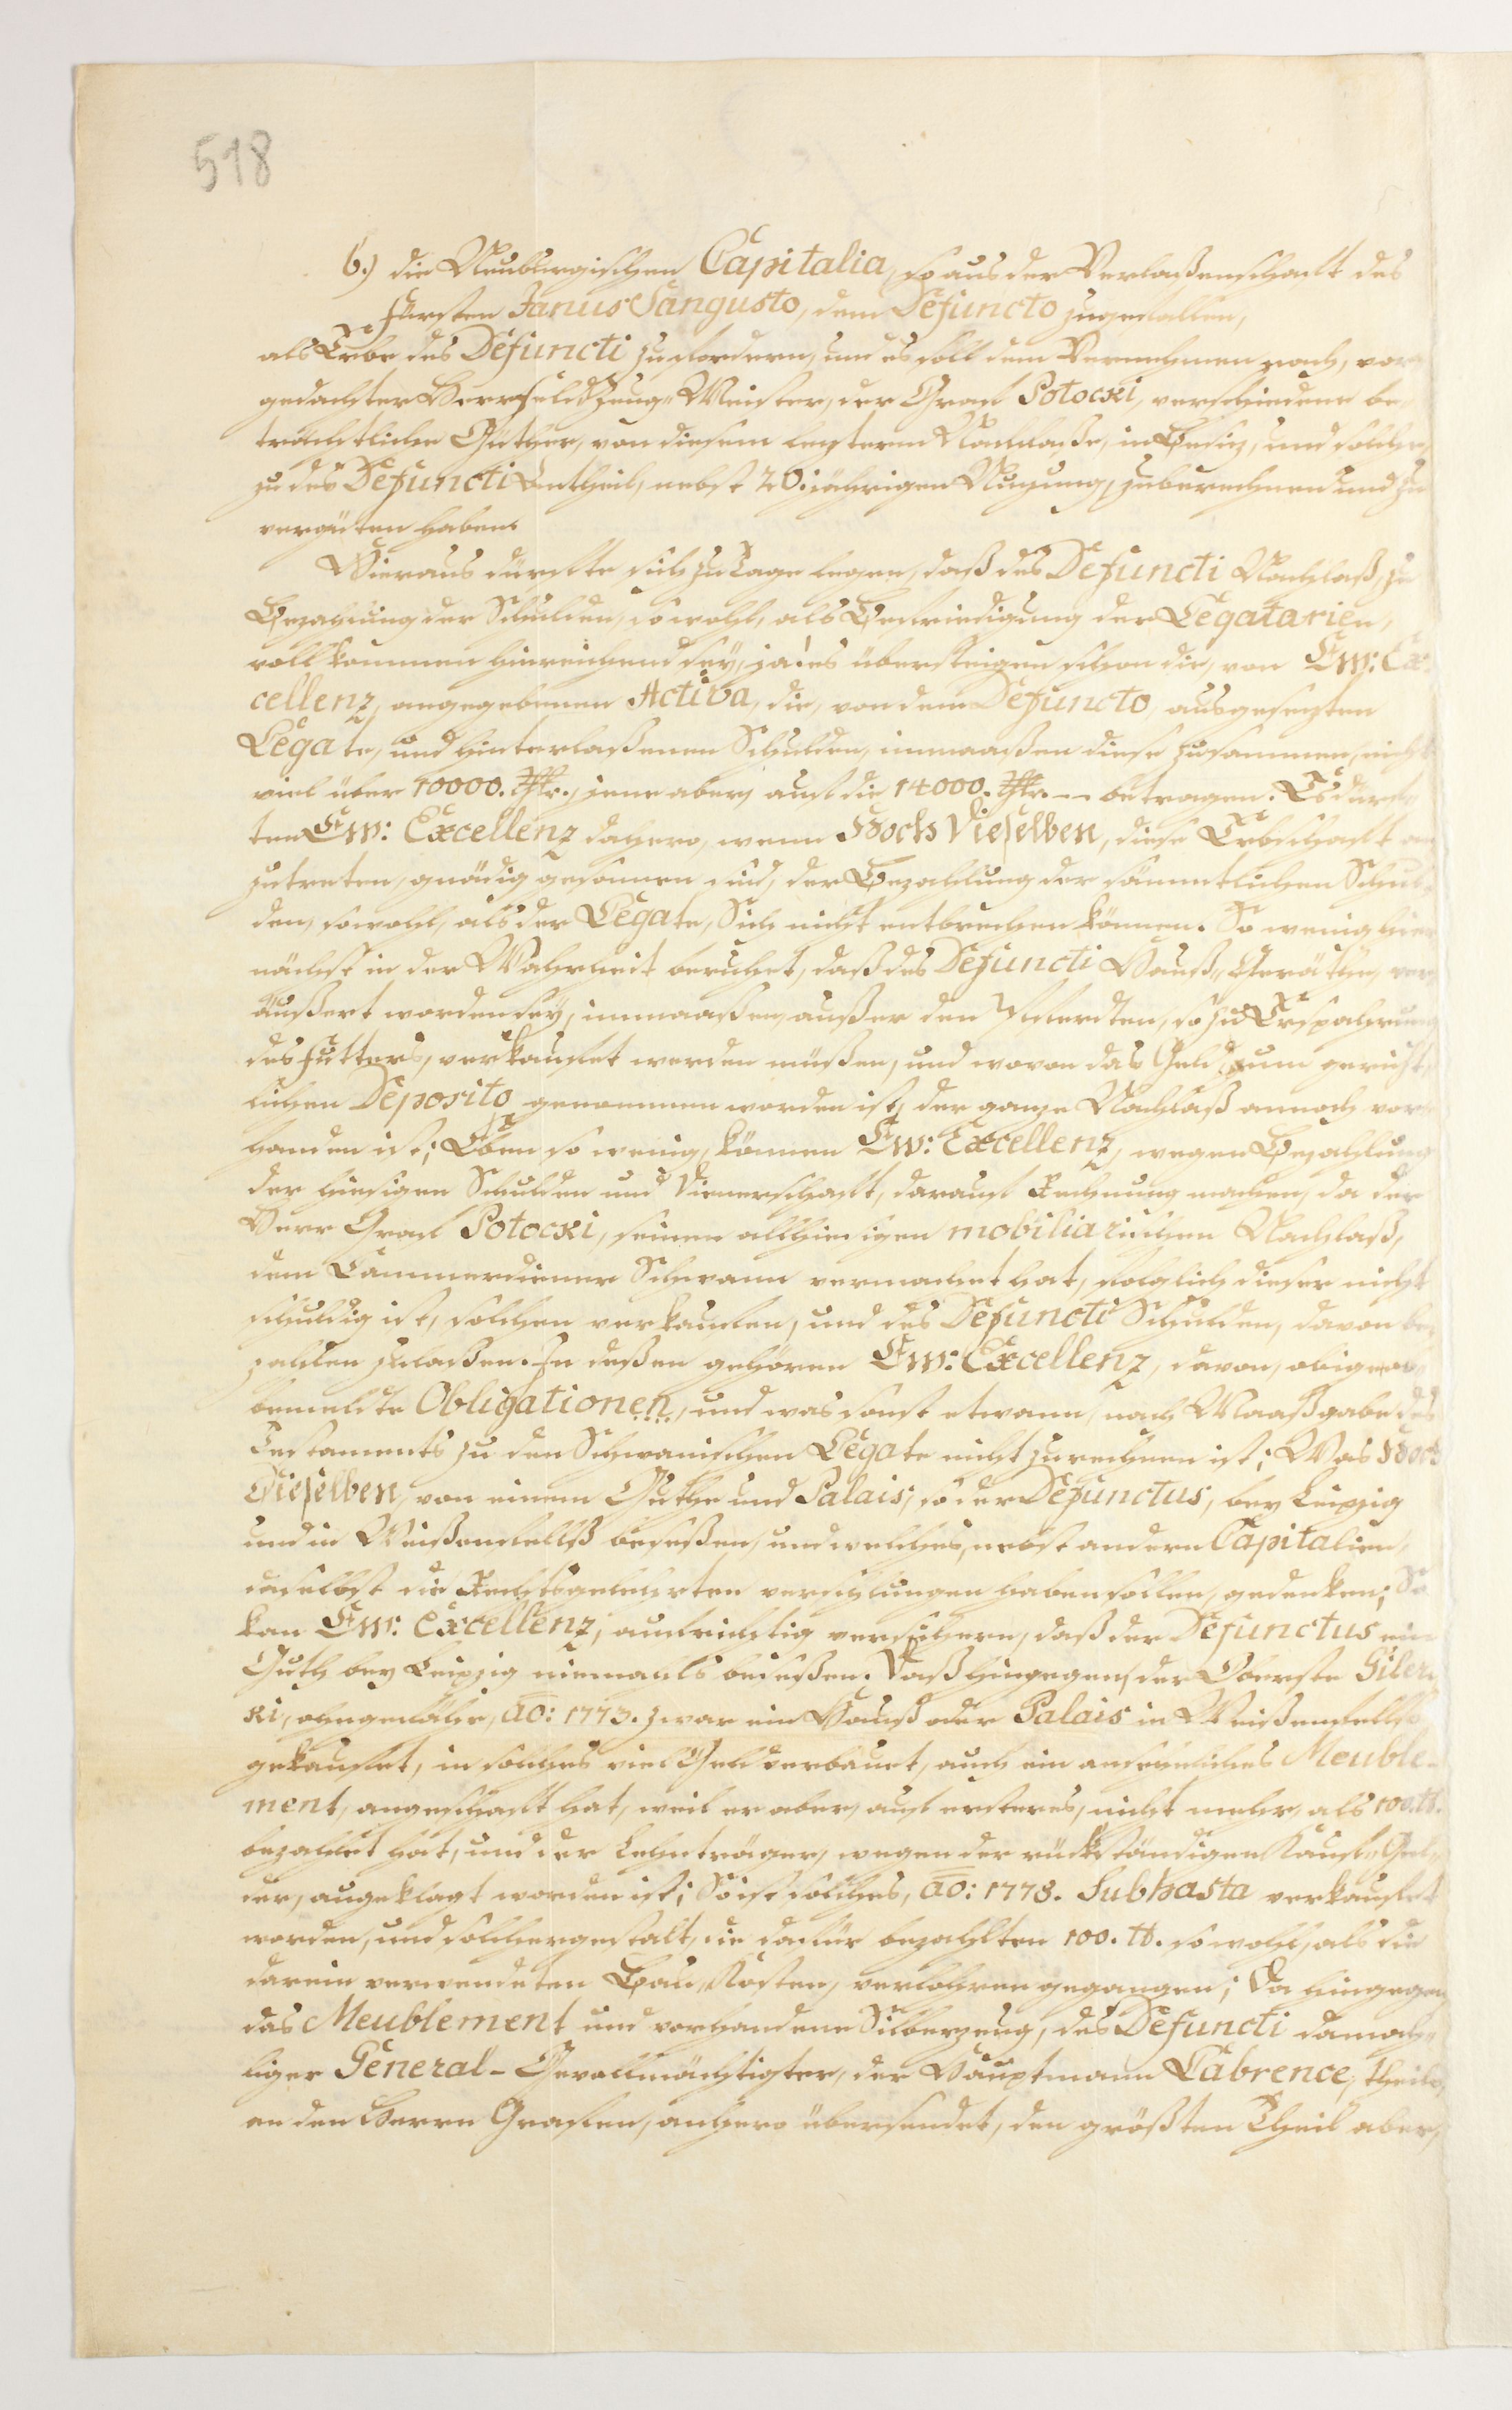 518
6.) die Neuburgischen Capitalia, so aus der Verlaßenschafft des
Fürsten Janus Sangusto, dem Defuncto zugefallen,
als Erbe des Defuncti zu fordern, und es soll dem Vernehmen nach, vor
gedachter Herr Feldzeug„Meister, der Graf Potocki, verschiedene be„
trächtliche Güther, von diesem letztern Nachlaße, in Besiz, und solche,
zu des Defuncti Antheil, nebst 20.jährigen Nuzung, zuberechnen und zu
vergüten haben.
Hieraus dürffte sich zu Tage legen, daß des Defuncti Nachlaß, zu
Bezahlung der Schulden, sowohl, als Befriedigung der Legatarien,
vollkommen hinreichend sey, ja! es übersteigen schon die, von Ew: Ex„
cellenz, angegebenen Activa, die, von dem Defuncto, ausgesezten
Legate, und hinterlaßenen Schulden, immaaßen diese zusammen, nicht
viel über 10000. Thlr., jene aber, auf die 14000. Thlr. — betragen. Es dürf„
ten Ew: Excellenz dahero, wenn Hoch Dieselben, diese Erbschafft an
zutreten, gnädig gesonnen sind, der Bezahlung der sämmtlichen Schul„
den, sowohl, als der Legate, Sich nicht entbrechen können. So wenig hier
nächst in der Wahrheit beruhet, daß des Defuncti Hauß„Geräthe, ver„
äußert worden sey, immaaßen, außer den Pferdten, so zu Erspahrung
des Futters, verkauffet werden müßen, und wovon das Geld zum gericht„
lichen Deposito genommen worden ist, der ganze Nachlaß annoch vor„
handen ist; Eben so wenig, können Ew: Excellenz, wegen Bezahlung
der hiesigen Schulden und Dienerschafft, darauf Rechnung machen, da der
Herr Graf Potocki, seinen allhiesigen mobiliarischen Nachlaß,
dem Cammerdiener Schwann vermachet hat, folglich dieser nicht
schuldig ist, solchen verkaufen, und des Defuncti Schulden, davon be„
zahlen zulaßen. In deßen gehören Ew: Excellenz, davon, obige
bemeldte Obligationen, und was sonst etwann, nach Maaßgabe des
Testaments zu den Schwanischen Legate nicht zurechnen ist; Was Hoch
Dieselben, von einem Guthe und Palais, so der Defunctus, bey Leipzig
und in Weißenfellß beseßen, und welches, nebst andern Capitalien,
daselbst die Rechtsgelehrten verschlungen haben sollen, gedenken; So
kan Ew: Excellenz, aufrichtig versichern, daß der Defunctus ein
Guth bey Leipzig niemahls beseßen. Daß hingegen, der Oberste
ki, ohngefähr, ao: 1773. zwar ein Hauß oder Palais in Weißenfellß
gekauffet, in solches viel Geld verbauet, auch ein ansehnliches Meuble„
ment, angeschafft hat, weil er aber, auf ersteres, nicht mehr, als 100. tt.
bezahlet hat, und der Lehnträger, wegen der rückständigen Kauf„Gel„
der, angeklagt worden ist; So ist solches, ao: 1778. Subhasta verkauffet
worden, und solchergestalt, die dafür bezahlten 100. tt. sowohl, als die
darein verwendeten Bau„Kosten, verlohren gegangen; Da hingegen
das Meublement und vorhandene Silberzeug, des Defuncti damah„
liger General-Gevollmächtigter, der Hauptmann Labrence, theils,
an den Herrn Grafen, anhero übersendet, den größten Theil aber,